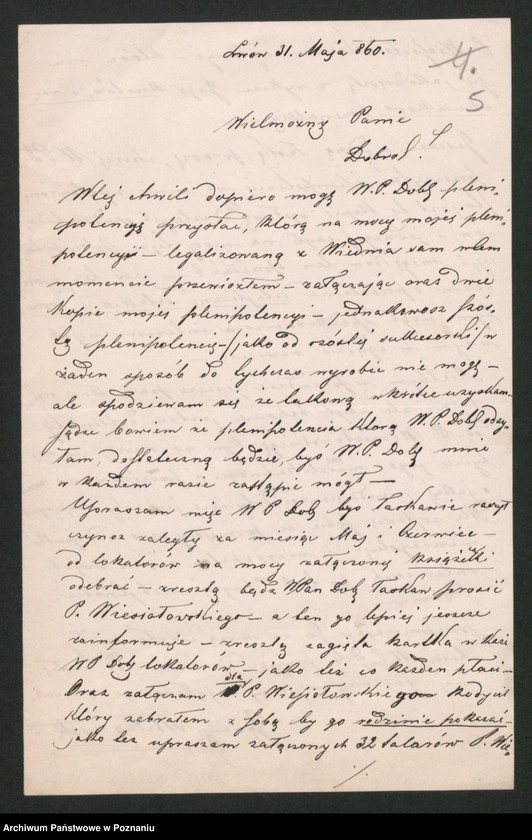 Lwów 31. Maja 860.
4.
5
Wielmożny Panie
Dobrod.!
W tej chwili dopiero mogę W.P. Dobą pleni-
potencyę przysłać, którą na mocy mojej pleni-
potencyi – legalizowaną z Wiednia sam w tem
momencie przeniosłem – załączając oraz dwie
kopie mojej plenipotencyi – jednakowoż
plenipotencię – /jako od sukcesorki/ w
żaden sposób do tychczas wyrobić nie mogę –
ale spodziewam się że takową wkrótce uzyskam –
sądzę bowiem że plenipotencia którą W.P. Dobą
dostateczną będzie, byś W.P. Dobą mnie
w każdem razie zastąpić mógł –
Upraszam więc W P Dobę być łaskawie raczył
czynsz zaległy za miesiąc Maj i Czerwiec –
od lokatorów na mocy załączonej książki
odebrać – zresztą bądź WPan Dobą łaskaw prosić
P. Wiesiołowskiego – a ten go lepiej jeszcze
zainformuje – zresztą kartka
WP Dobą lokatorów – jako też co każden płaci –
Oraz załączam dla P. Wiesiołowskiego
który zabrałem z sobą by go rodzinie pokazać –
jako też upraszam załączonych 32 talarów P. Wie-
./.
Archiwum Państwowe w Poznaniu